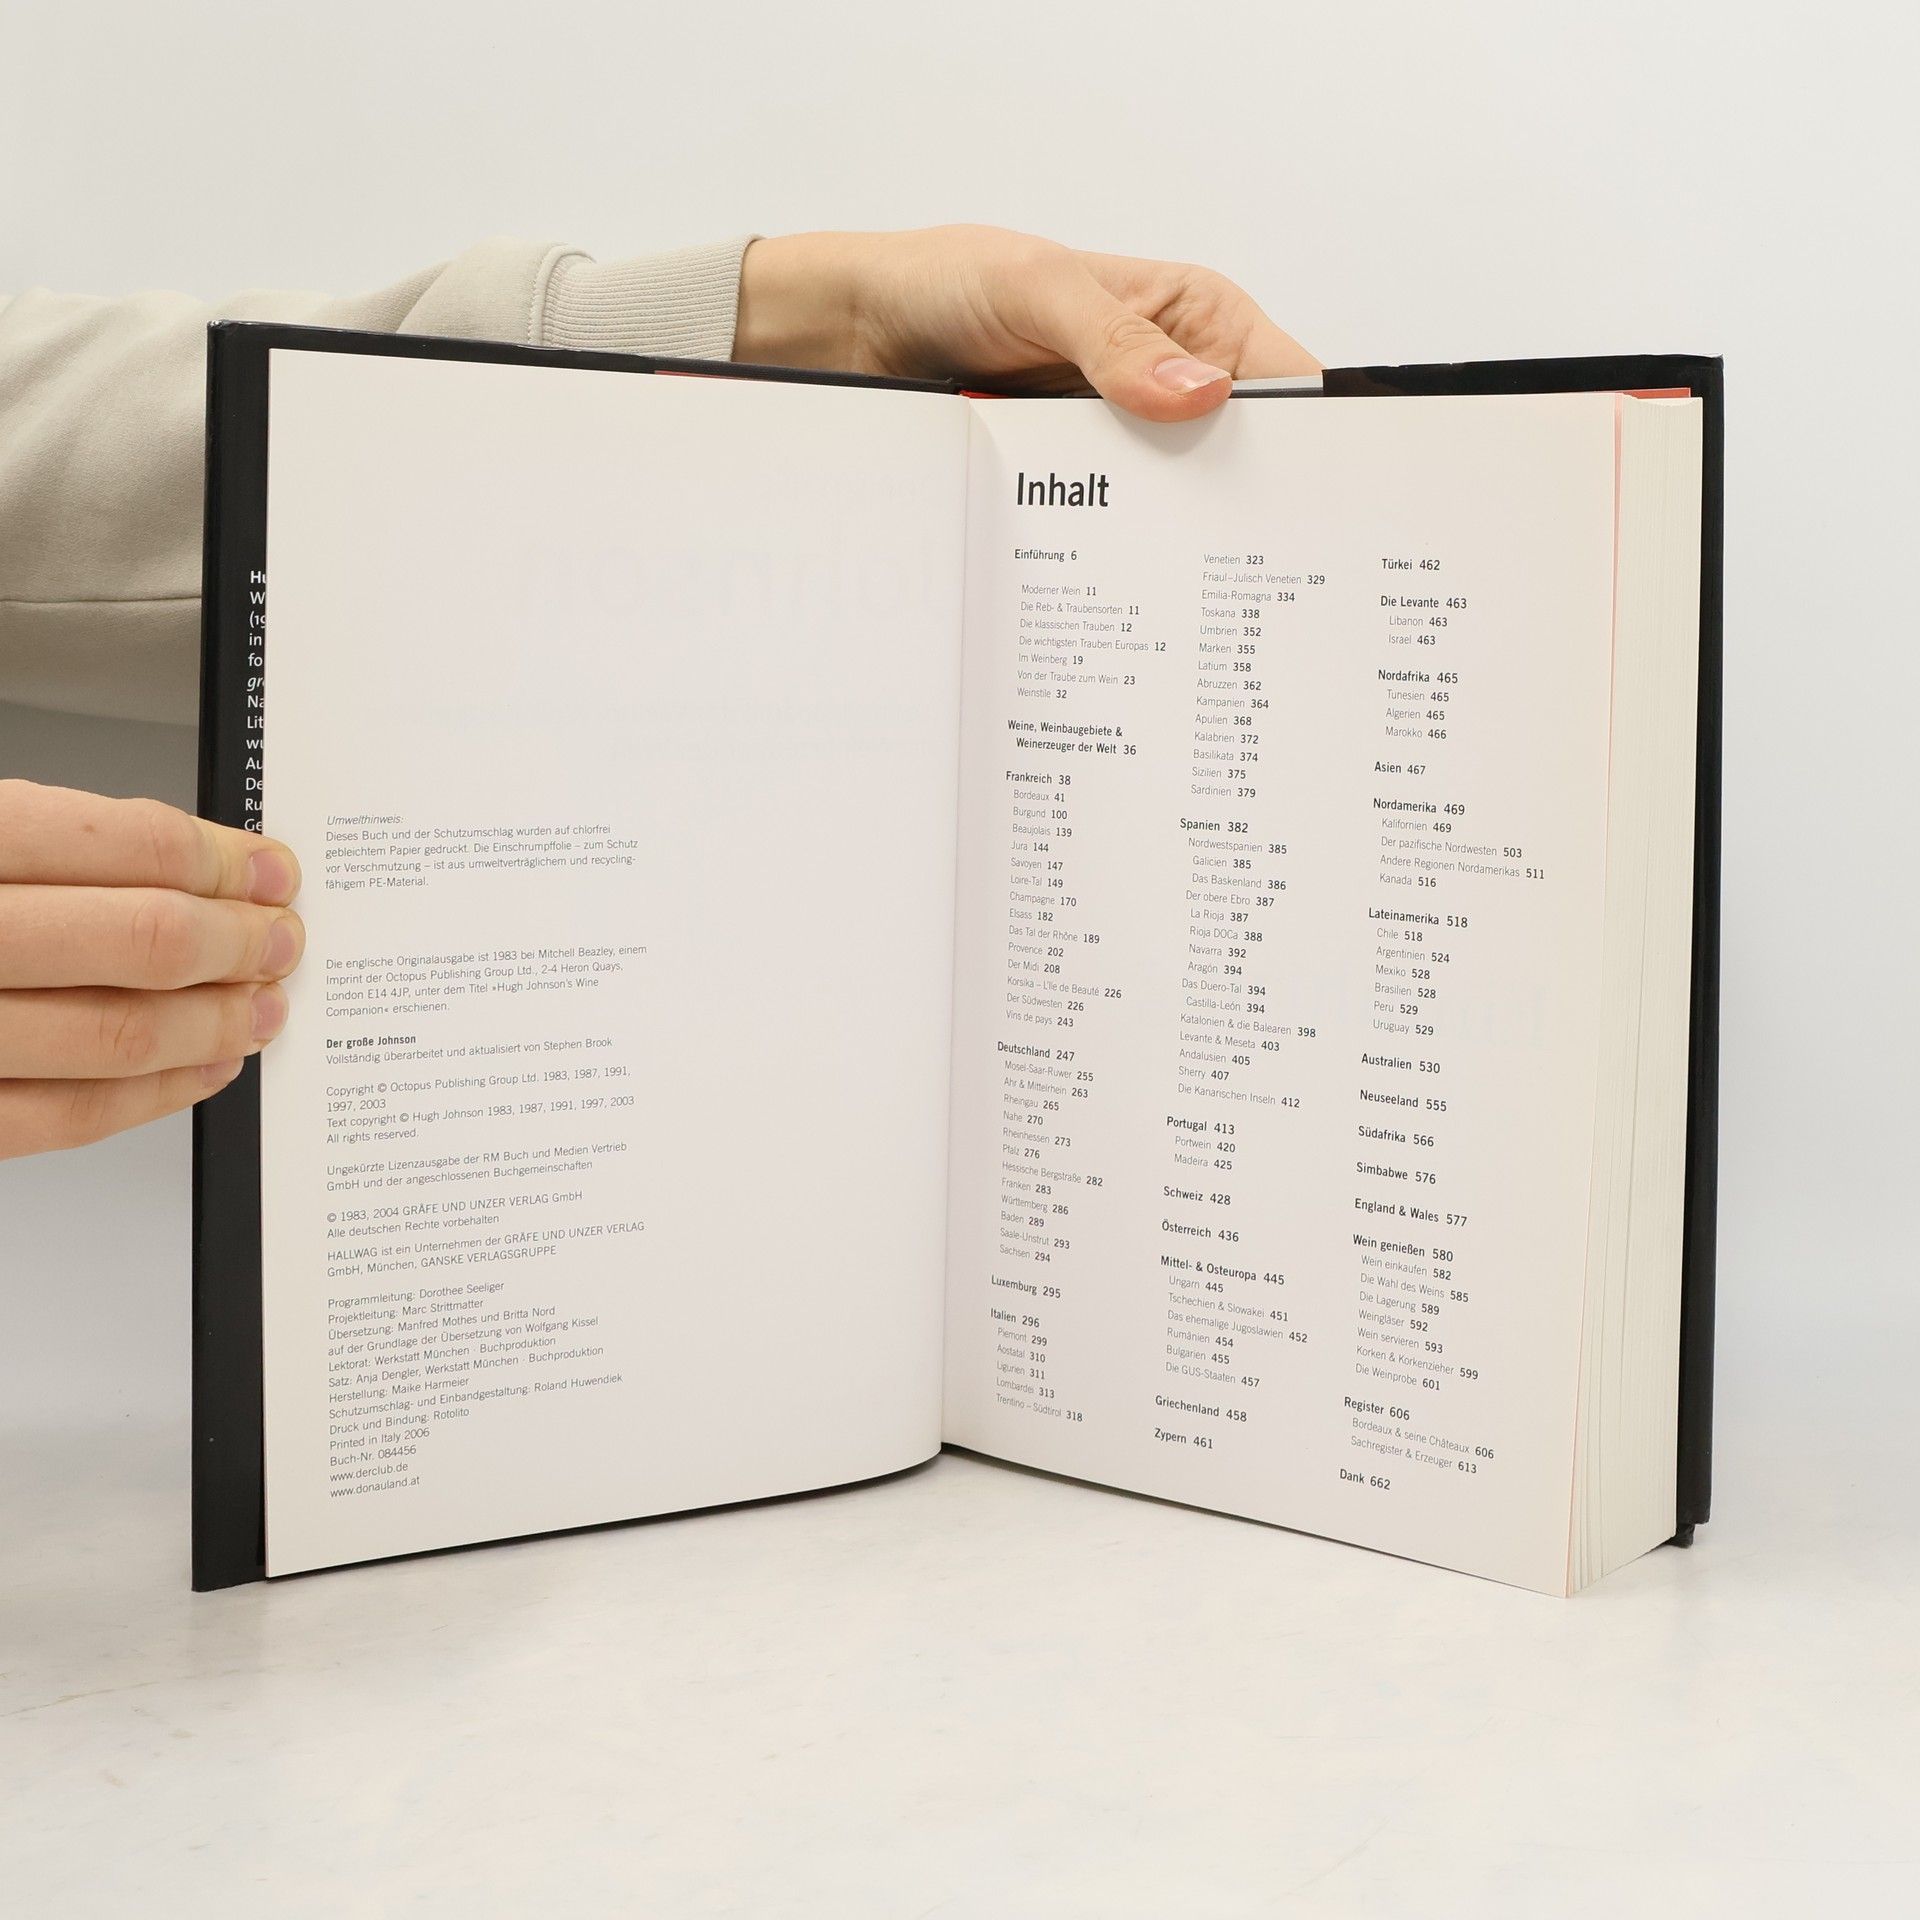 Hu
W
(19
in
fo
gr
Na
Lit
wu
Au
De
Ru
Ge
Umwelthinweis:
Dieses Buch und der Schutzumschlag wurden auf chlorfrei
gebleichtem Papier gedruckt. Die Einschrumpffolie – zum Schutz
vor Verschmutzung – ist aus umweltverträglichem und recycling-
fähigem PE-Material.
Die englische Originalausgabe ist 1983 bei Mitchell Beazley, einem
Imprint der Octopus Publishing Group Ltd., 2-4 Heron Quays,
London E14 4JP, unter dem Titel »Hugh Johnson's Wine
Companion« erschienen.
Der große Johnson
Vollständig überarbeitet und aktualisiert von Stephen Brook
Copyright © Octopus Publishing Group Ltd. 1983, 1987, 1991,
1997, 2003
Text copyright © Hugh Johnson 1983, 1987, 1991, 1997, 2003
All rights reserved.
Ungekürzte Lizenzausgabe der RM Buch und Medien Vertrieb
GmbH und der angeschlossenen Buchgemeinschaften
© 1983, 2004 GRÄFE UND UNZER VERLAG GmbH
Alle deutschen Rechte vorbehalten
HALLWAG ist ein Unternehmen der GRÄFE UND UNZER VERLAG
GmbH, München, GANSKE VERLAGSGRUPPE
Programmleitung: Dorothee Seeliger
Projektleitung: Marc Strittmatter
Übersetzung: Manfred Mothes und Britta Nord
auf der Grundlage der Übersetzung von Wolfgang Kissel
Lektorat: Werkstatt München · Buchproduktion
Satz: Anja Dengler, Werkstatt München · Buchproduktion
Herstellung: Maike Harmeier
Schutzumschlag- und Einbandgestaltung: Roland Huwendiek
Druck und Bindung: Rotolito
Printed in Italy 2006
Buch-Nr. 084456
www.derclub.de
www.donauland.at
Inhalt
Einführung 6
Moderner Wein 11
Die Reb- & Traubensorten 11
Die klassischen Trauben 12
Die wichtigsten Trauben Europas 12
Im Weinberg 19
Von der Traube zum Wein 23
Weinstile 32
Weine, Weinbaugebiete &
Weinerzeuger der Welt 36
Frankreich 38
Bordeaux 41
Burgund 100
Beaujolais 139
Jura 144
Savoyen 147
Loire-Tal 149
Champagne 170
Elsass 182
Das Tal der Rhône 189
Provence 202
Der Midi 208
Korsika – L'Ile de Beauté 226
Der Südwesten 226
Vins de pays 243
Deutschland 247
Mosel-Saar-Ruwer 255
Ahr & Mittelrhein 263
Rheingau 265
Nahe 270
Rheinhessen 273
Pfalz 276
Hessische Bergstraße 282
Franken 283
Württemberg 286
Baden 289
Saale-Unstrut 293
Sachsen 294
Luxemburg 295
Italien 296
Piemont 299
Aostatal 310
Ligurien 311
Lombardei 313
Trentino – Südtirol 318
Venetien 323
Friaul–Julisch Venetien 329
Emilia-Romagna 334
Toskana 338
Umbrien 352
Marken 355
Latium 358
Abruzzen 362
Kampanien 364
Apulien 368
Kalabrien 372
Basilikata 374
Sizilien 375
Sardinien 379
Spanien 382
Nordwestspanien 385
Galicien 385
Das Baskenland 386
Der obere Ebro 387
La Rioja 387
Rioja DOCa 388
Navarra 392
Aragón 394
Das Duero-Tal 394
Castilla-León 394
Katalonien & die Balearen 398
Levante & Meseta 403
Andalusien 405
Sherry 407
Die Kanarischen Inseln 412
Portugal 413
Portwein 420
Madeira 425
Schweiz 428
Österreich 436
Mittel- & Osteuropa 445
Ungarn 445
Tschechien & Slowakei 451
Das ehemalige Jugoslawien 452
Rumänien 454
Bulgarien 455
Die GUS-Staaten 457
Griechenland 458
Zypern 461
Türkei 462
Die Levante 463
Libanon 463
Israel 463
Nordafrika 465
Tunesien 465
Algerien 465
Marokko 466
Asien 467
Nordamerika 469
Kalifornien 469
Der pazifische Nordwesten 503
Andere Regionen Nordamerikas 511
Kanada 516
Lateinamerika 518
Chile 518
Argentinien 524
Mexiko 528
Brasilien 528
Peru 529
Uruguay 529
Australien 530
Neuseeland 555
Südafrika 566
Simbabwe 576
England & Wales 577
Wein genießen 580
Wein einkaufen 582
Die Wahl des Weins 585
Die Lagerung 589
Weingläser 592
Wein servieren 593
Korken & Korkenzieher 599
Die Weinprobe 601
Register 606
Bordeaux & seine Châteaux 606
Sachregister & Erzeuger 613
Dank 662